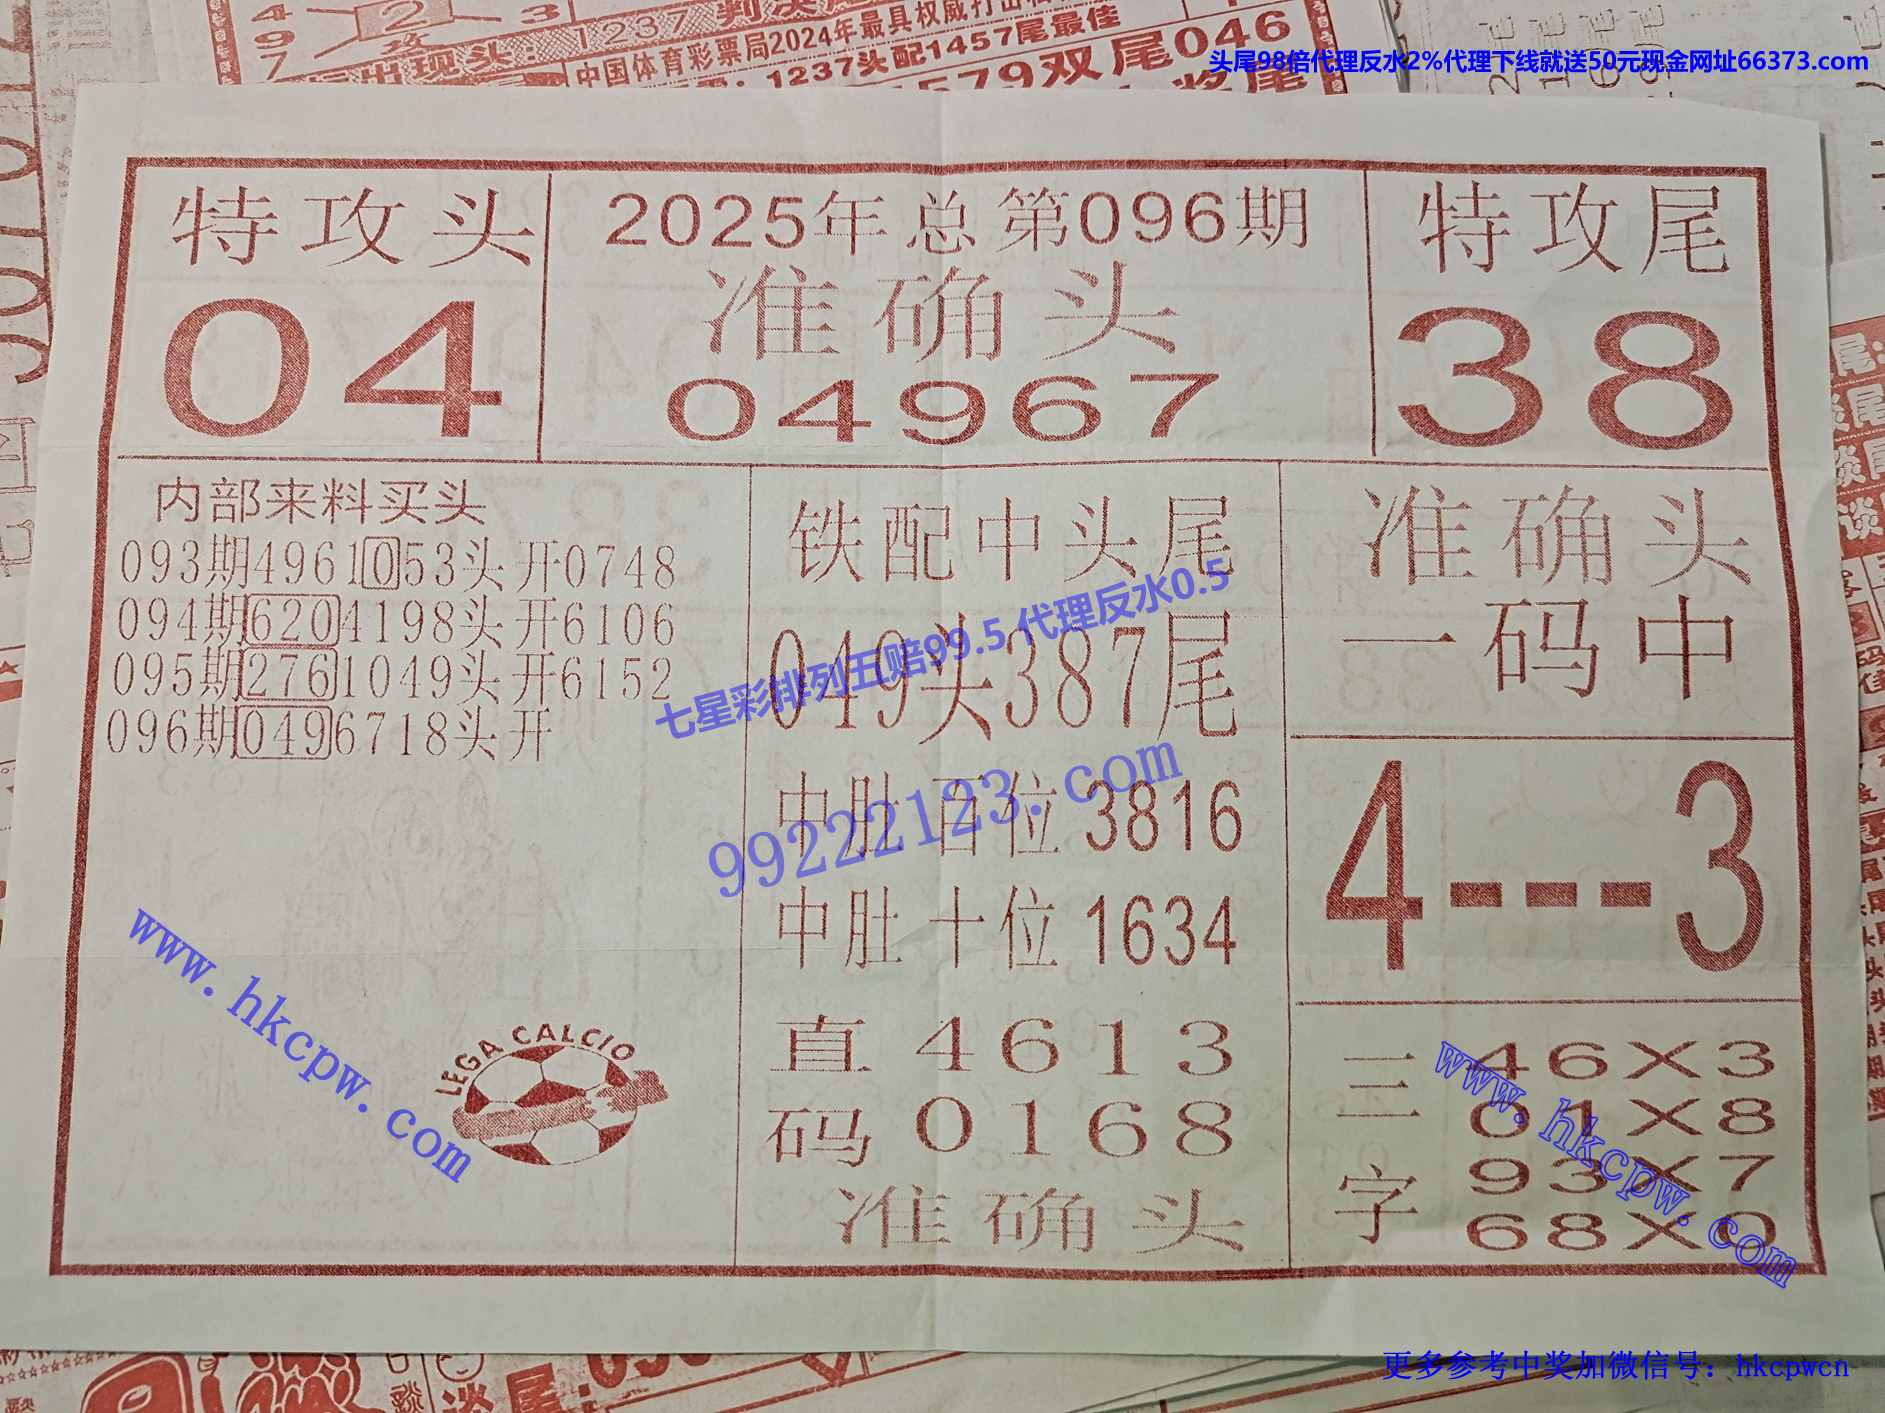 1237
中国体育彩票局2024年最具权威打击
1237头配1457尾最佳
579双尾046
头尾98倍代理反水2%代理下线就送50元现金网址66373.com
特攻头
04
2025年总第096期
准确头
04967
特攻尾
38
内部来料买头
093期4961053头开0748
094期6204198头开6106
095期2761049头开6152
096期0496718头开
铁配中头尾
049头387尾
中肚百位3816
中肚十位1634
直码
4613
0168
准确头
准确头
一码中
4---3
三字
46X3
01X8
93X7
68X0
LEGA CALCIO
七星彩排列五赔99.5 代理反水0.5
99222123.com
www.hkcpw.com
www.hkcpw.com
更多参考中奖加微信号：hkcpwcn